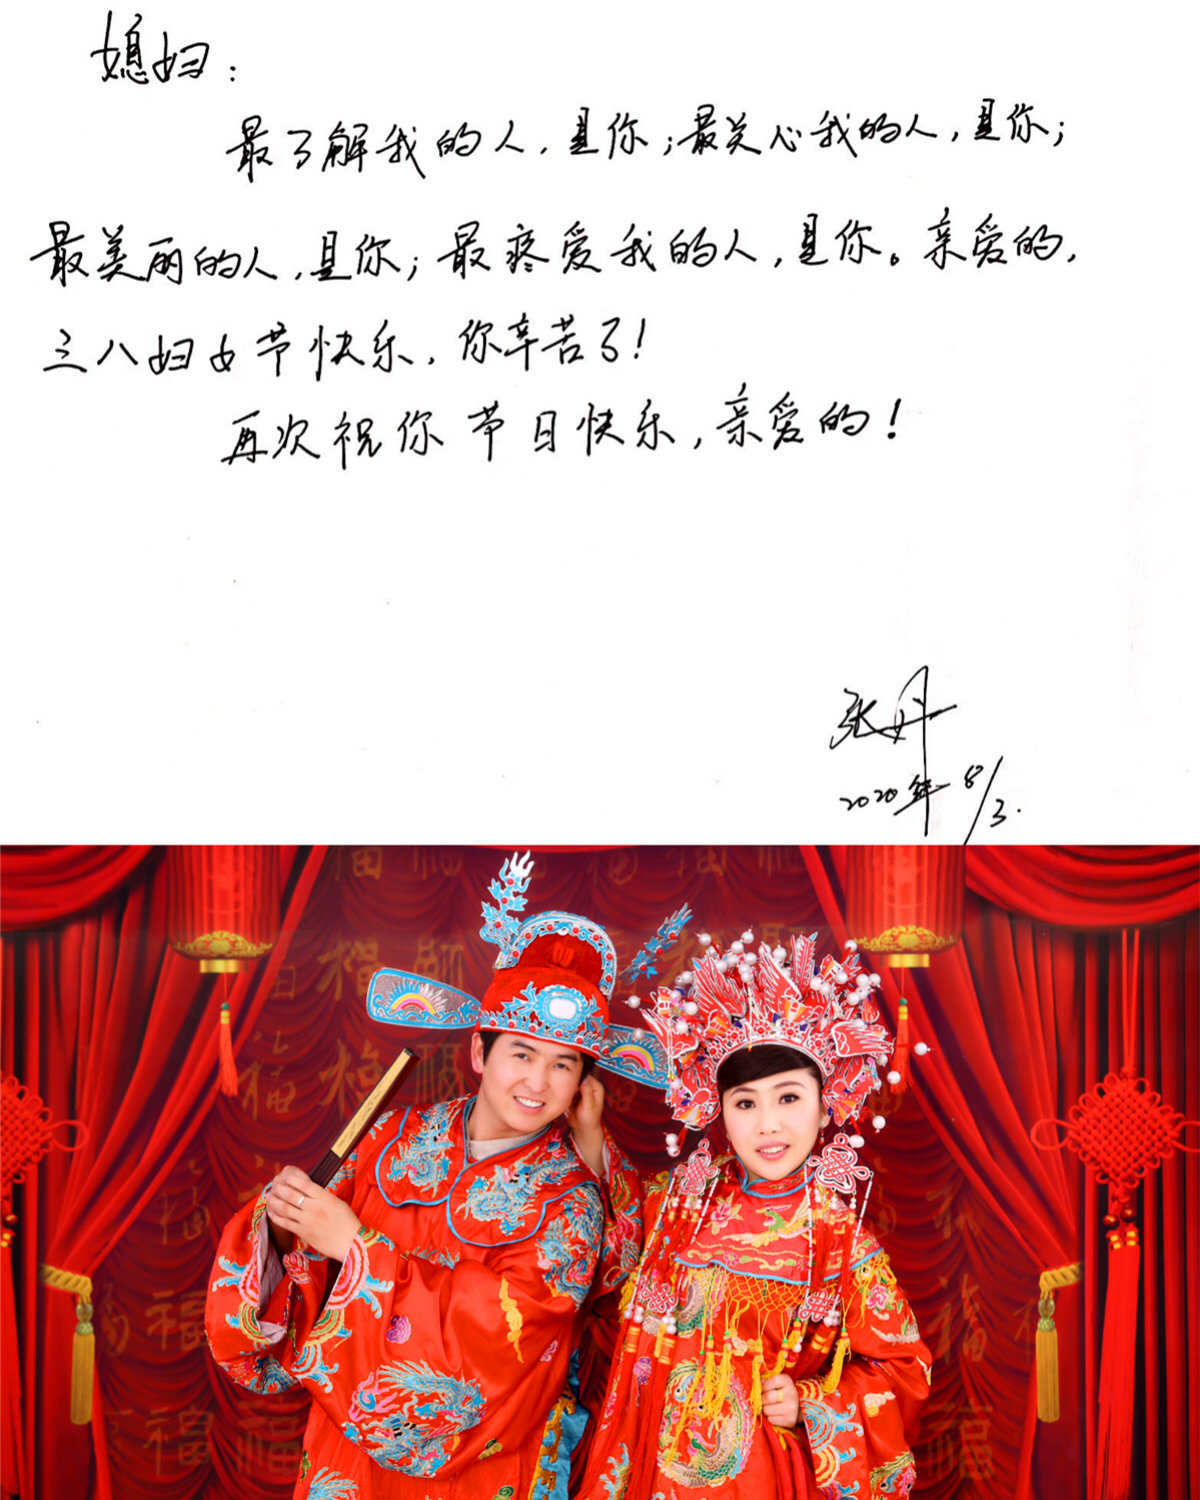 媳妇：
最了解我的人，是你；最关心我的人，是你；
最美丽的人，是你；最疼爱我的人，是你。亲爱的，
三八妇女节快乐，你辛苦了！
再次祝你节日快乐，亲爱的！
张丹
2020年8/3.
福
福
福
福
福
福